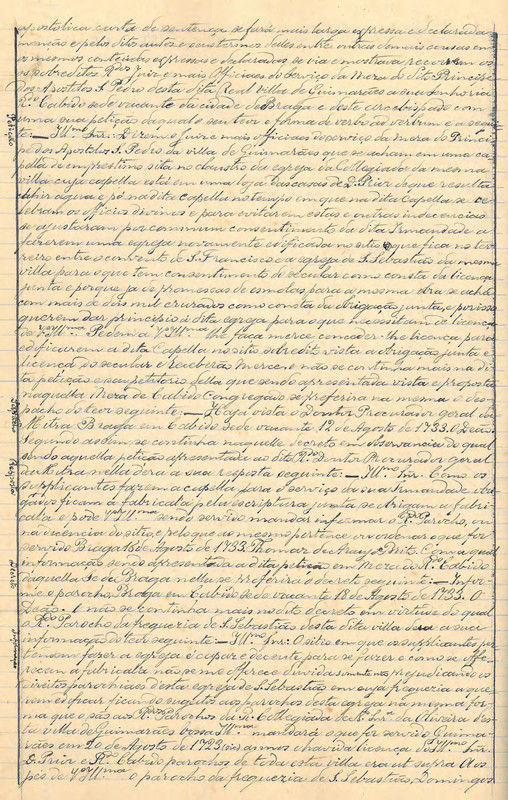 apostolica carta de sentença se fará mais larga expressa e declarada
menção e pelos ditos autos e seus termos delles entre outras demais cousas em
os mesmos contehudas expressas e declaradas se via e mostrava recorrerem os
sobreditos Rdos Juiz e mais Officiaes do Serviço da Meza do dito Principe
dos Apostolos S. Pedro desta dita Real Villa de Guimarães a sua Senhoria
Rmo Cabido sede vacante da cidade de Braga e deste arcebispado com
uma sua petição da qual o seu teor e forma de verbo ad verbum e a seguin-
te: — Illmo Snr. Dizem o Juiz e mais officiaes do serviço da Meza do Princi-
pe dos Apostolos S. Pedro da villa de Guimarães que se acham em uma ca-
pella de emprestimo sita no claustro da egreja da Collegiada da mesma
villa cuja capella está em uma loja das casas de D. Prior de que resulta
cahir agua e pó na dita Capella no tempo em que na dita Capella se ce-
lebram os officios divinos e para evitar em estas e outras indecencias
se ajustaram por commum consentimento da dita Irmandade a
fazerem uma egreja novamente edificada no sitio que fica no ter-
reiro entre o convento de S. Francisco e a egreja de S. Sebastião da mesma
villa para o que tem consentimento do secular como consta da licença
junta e porque ja de promessas de esmolas para a mesma obra se acha
com mais de dois mil cruzados como consta da obrigação junta, e por isso
querem dar principio á dita egreja para o que necessitam de licença
de V. Illma Pedem a V. Illma lhe faça merce conceder-lhe licença para
edificarem a dita Capella no sitio sobredito vista a obrigação junta e
licença do secular e Receberão Merce e não se continha mais na di-
ta petição e seu petitorio della que sendo apresentada vista e proposta
naquella Meza de Cabido Congregação se proferira na mesma o des-
pacho do teor seguinte: — Haja vista o Doutor Procurador geral da
Mitra Braga em Cabido sede vacante 12 de Agosto de 1733. O Deão.
Segundo assim se continha naquelle decreto em observancia do qual
sendo aquella petição apresentada ao dito Rdo Doutor Procurador geral
da Mitra nella dera a sua resposta seguinte: — Illmo Snr. Como os
supplicantes fazem a capella para o serviço da sua Irmandade obri-
gados ficam a fabrical-a pela escriptura junta se obrigam a fabri-
cal-a e pode V. Illma sendo servido mandar informar o Rdo Parocho, em
na decencia do sitio, e pelo que ao mesmo pertence ordenar o que for
servido Braga 16 de Agosto de 1733. Com a qual
informação sendo apresentada a dita petição em Meza do Rmo Cabido
daquella Sé de Braga nella se proferira o decreto seguinte: — Infor-
me o parocho Braga em Cabido sede vacante 18 de Agosto de 1733. O
Deão. E não se continha mais no dito decreto em virtude do qual
o Rdo Parocho da freguezia de S. Sebastião desta dita villa dera a sua
informação do teor seguinte — Illmo Snr: O sitio em que os supplicantes per-
tendem fazer a egreja é capaz e decente para se fazer e como se offe-
recem a fabrical-a não se me offerece duvida somente não prejudicando os
direitos parochiaes desta egreja de S. Sebastião em cuja freguezia a que-
rem edificar ficando sugeitos aos parochos desta egreja na mesma for-
ma que o são aos Rdos Parochos da Rl Collegiada de N. Snra da Oliveira des-
ta villa de Guimarães V. Illma mandará o que for servido Guima-
rães em 20 de Agosto de 1733
D. Prior e Rdo Cabido parochos de toda esta villa era ut supra Aos
pés de V. Illma o parocho da freguezia de S. Sebastião, Domingos
Petição
Despacho
Resposta
Informação